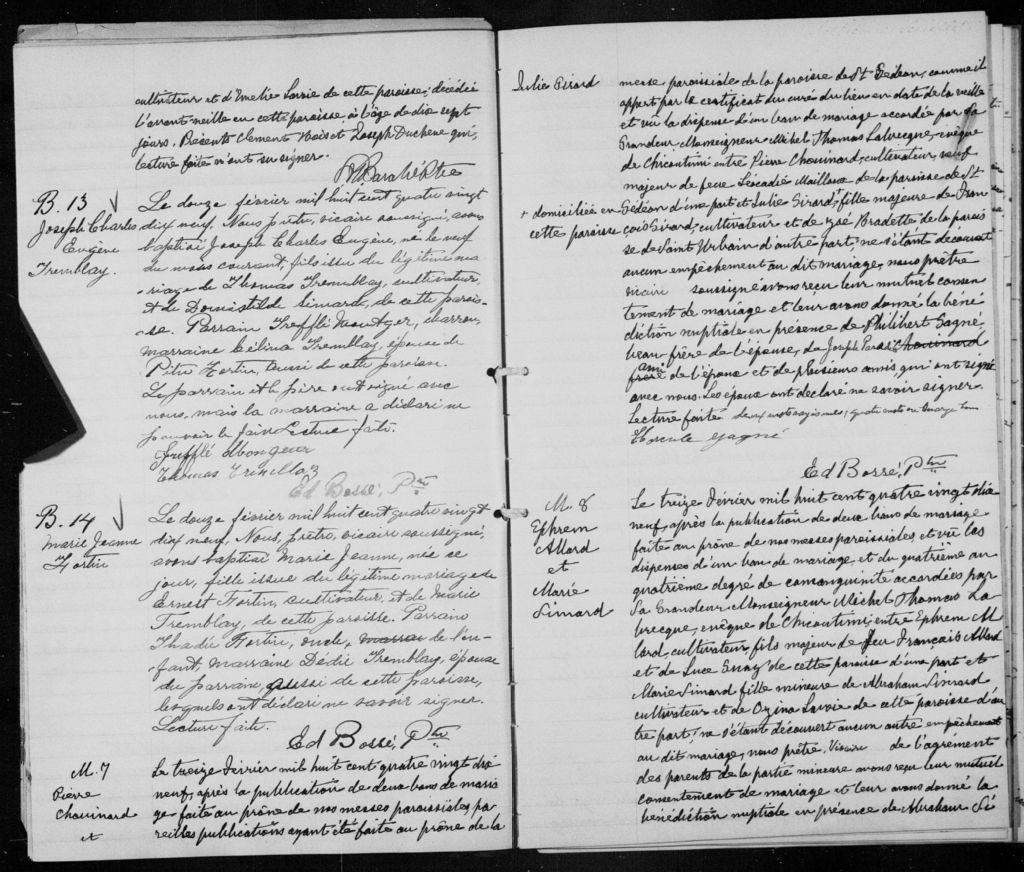 cultivateur et d'Amelie Savoie de cette paroisse, décédé
l'avant veille en cette paroisse, à l'âge de dix sept
jours. Présents Clement et Joseph Duchene qui,
lecture faite n'ont su signer.
Ptre
B. 13
Joseph Charles
Eugène
Tremblay.
Le douze février mil huit cent quatre vingt
dix neuf, Nous prêtre, vicaire soussigné, avons
baptisé Joseph Charles Eugène, né le neuf
du mois courant, fils issu du légitime ma
riage de Thomas Tremblay, cultivateur,
et de Domitilde Simard, de cette parois-
se. Parrain Trefflé Mauger, charron,
marraine Célina Tremblay, épouse de
Pitre Fortin, aussi de cette paroisse.
Le parrain et le père ont signé avec
nous, mais la marraine a déclaré ne
pouvoir le faire. Lecture faite.
Trefflé Mongeur
Thomas
Ed Bossé, Ptre
B. 14
Marie Jeanne
Fortin
Le douze février mil huit cent quatre vingt
dix neuf, Nous, prêtre, vicaire soussigné,
avons baptisé Marie Jeanne, née ce
jour, fille issue du légitime mariage de
Ernest Fortin, cultivateur, et de Marie
Tremblay, de cette paroisse. Parrain
Thadée Fortin, oncle, de l'en-
fant, marraine Dédie Tremblay, épouse
du parrain, aussi de cette paroisse,
lesquels ont déclaré ne savoir signer.
Lecture faite.
Ed Bossé, Ptre
M. 7
Pierre
Chouinard
et
Le treize février mil huit cent quatre vingt dix
neuf, après la publication de deux bans de maria
ge faite au prône de nos messes paroissiales, pa
reilles publications ayant été faite au prône de la
Julie Girard
messe paroissiale de la paroisse de St Gédéon, comme il
appert par le certificat du curé du lieu en date de la veille
et vû la dispense d'un ban de mariage accordée par Sa
Grandeur Monseigneur Michel Thomas Labrecque, évêque
de Chicoutimi entre Pierre Chouinard, cultivateur, veuf
majeur de feue Léocadie Mailloux de la paroisse de St
+ domiciliée en
cette paroisse
Gédéon d'une part et Julie Girard, + fille majeure de Fran
çois Girard, cultivateur et de Zoé Bradette de la parois
se de Saint Urbain d'autre part, ne s'étant découvert
aucun empêchement au dit mariage, nous prêtre
vicaire soussigné avons reçu leur mutuel consen
tement de mariage et leur avons donné la béné
diction nuptiale en présence de Philibert Gagné,
beau-frère de l'épouse, de Joseph Paradis Chouinard
ami
frère de l'époux et de plusieurs amis, qui ont signé
avec nous. Les époux ont déclaré ne savoir signer.
Lecture faite. deux mots rayés nuls, quatre mots en marge bons
Hercule Gagné
Ed Bossé, Ptre
M. 8
Ephrem
Allard
et
Marie
Simard
Le treize février mil huit cent quatre vingt dix
neuf, après la publication de deux bans de mariage
faite au prône de nos messes paroissiales et vû les
dispenses d'un ban de mariage, et du quatrième au
quatrième degré de consanguinité accordées par
Sa Grandeur Monseigneur Michel Thomas La
brecque, évêque de Chicoutimi, entre Ephrem Al
lard, cultivateur, fils majeur de feu François Allard
et de Luce de cette paroisse d'une part et
Marie Simard fille mineure de Abraham Simard
cultivateur et de Ozina Savoie de cette paroisse d'au
tre part; ne s'étant découvert aucun autre empêchement
au dit mariage, nous prêtre, Vicaire de l'agrément
des parents de la partie mineure avons reçu leur mutuel
consentement de mariage et leur avons donné la
bénédiction nuptiale en présence de Abraham Si